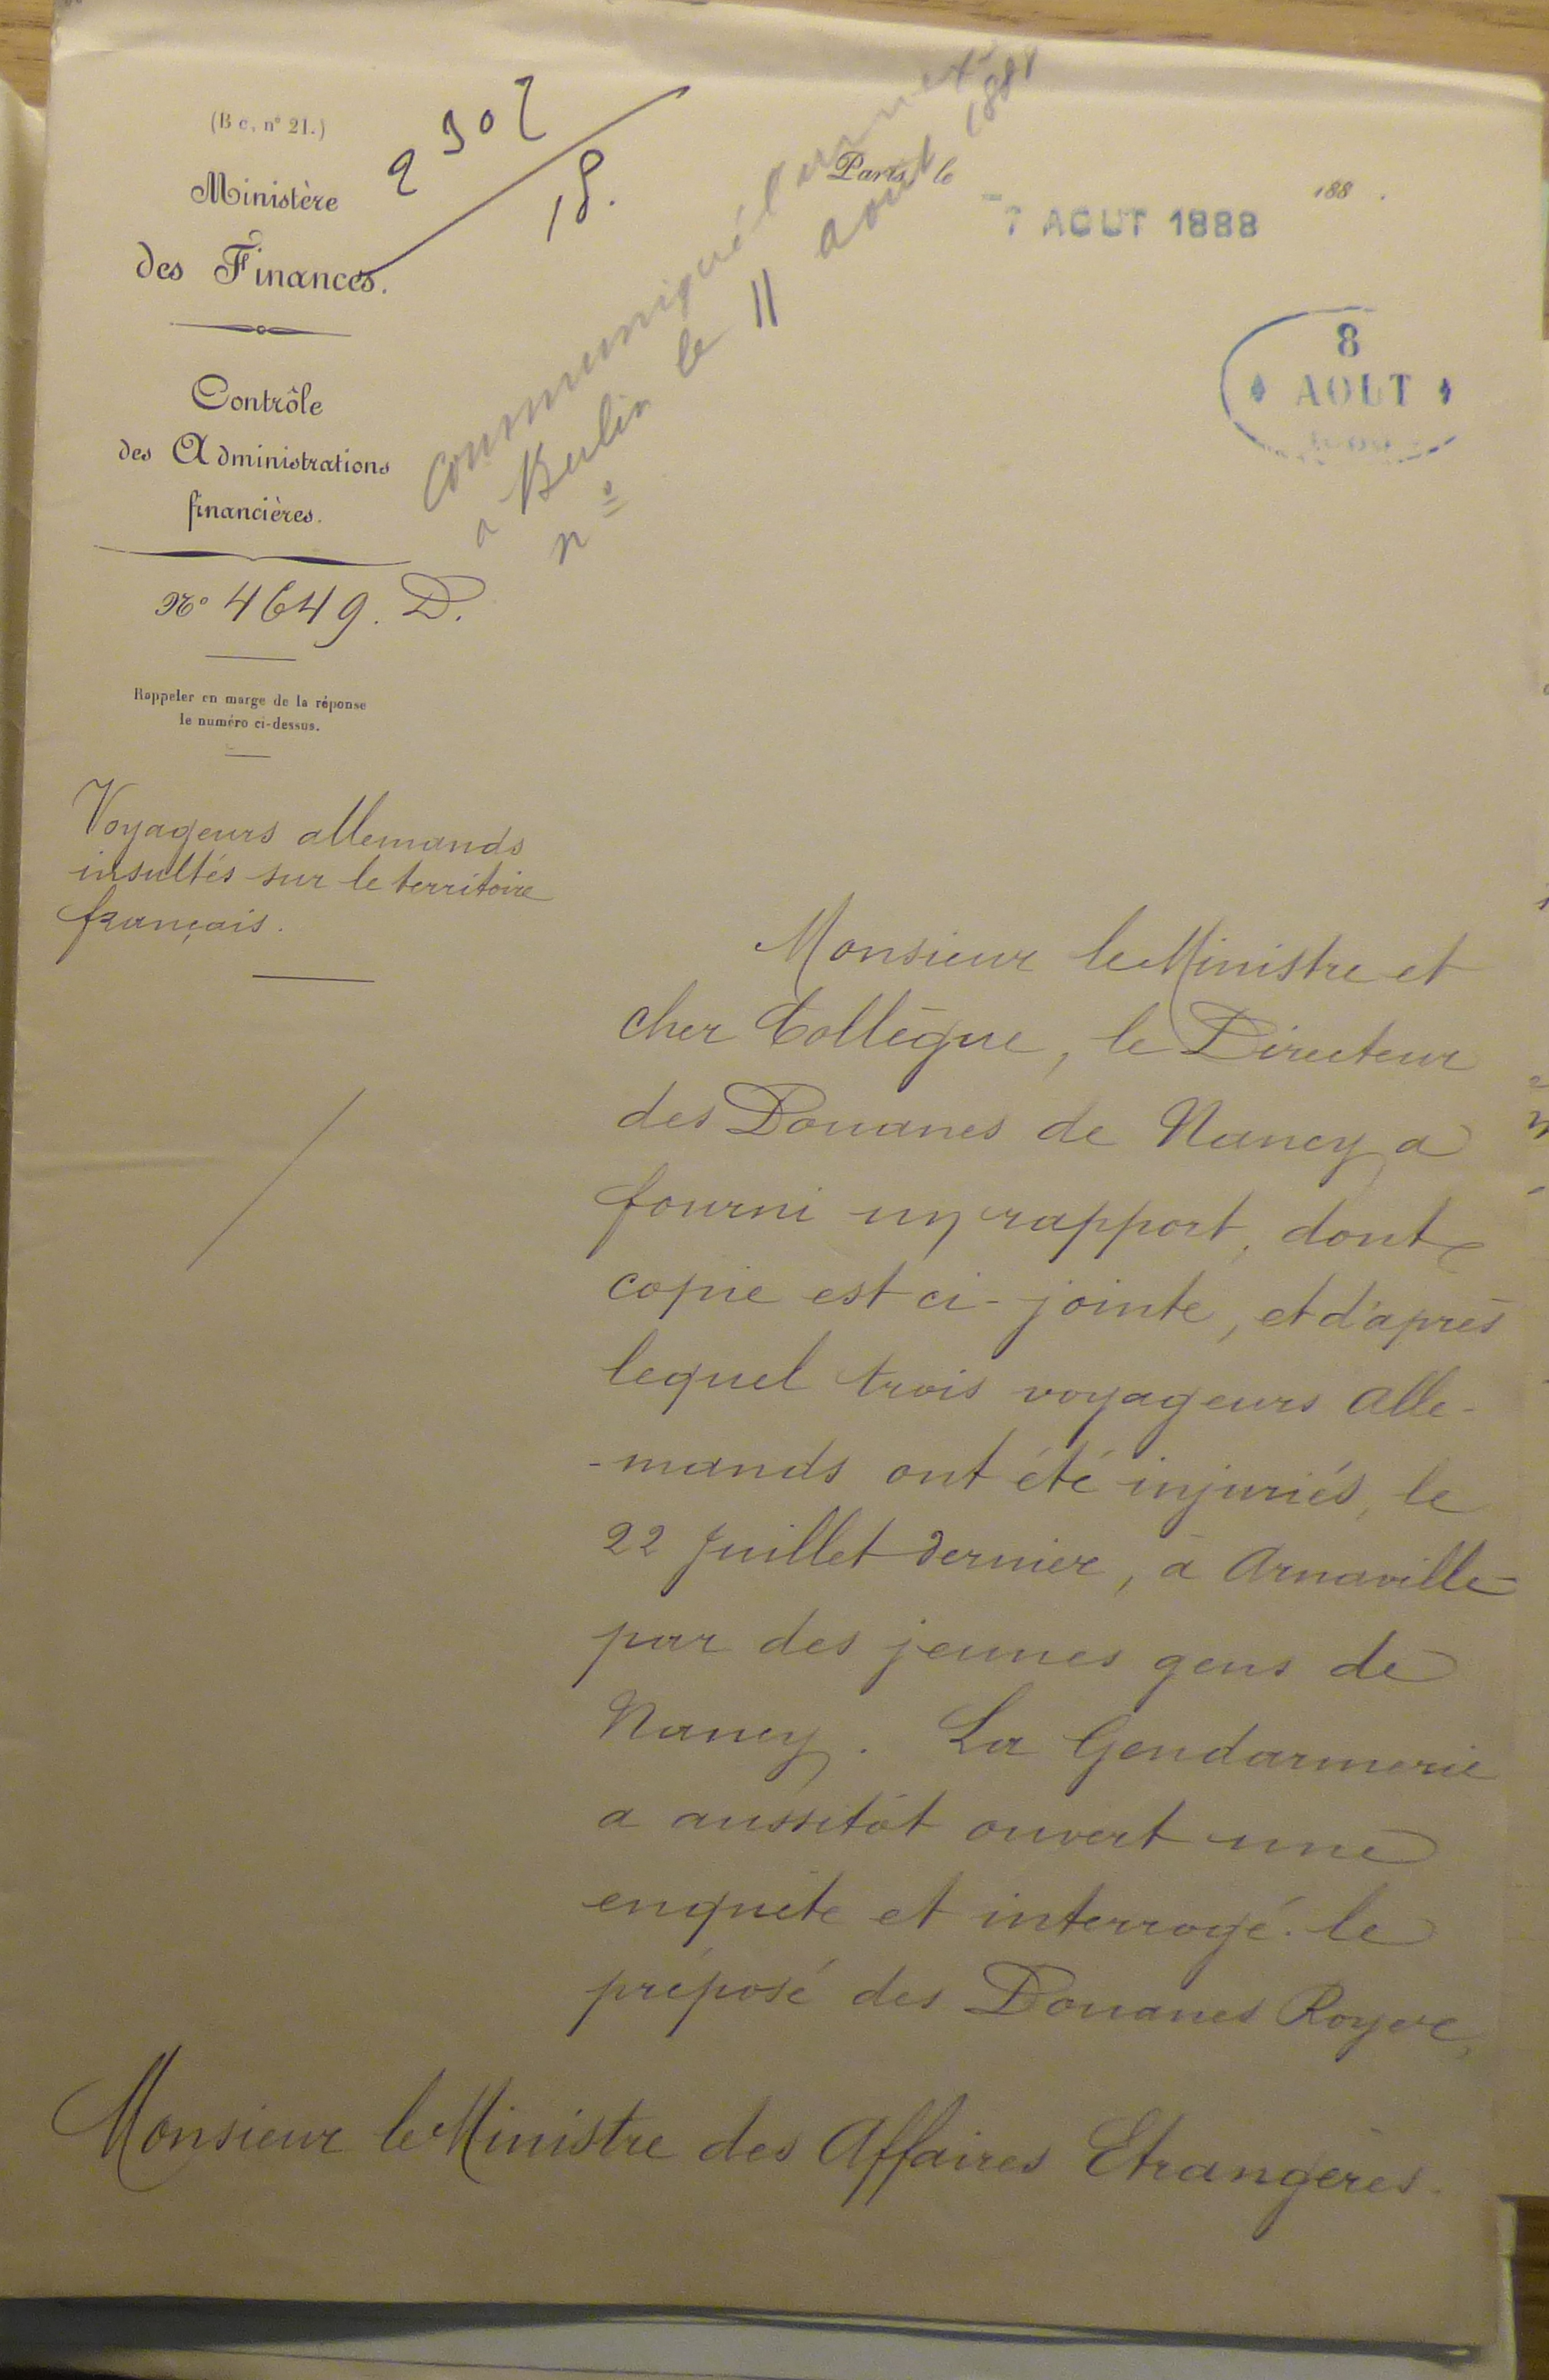 (B c, n° 21.)
Ministère
des Finances.
Contrôle
des Administrations
financières.
N° 4649. D.
Rappeler en marge de la réponse
le numéro ci-dessus.
Voyageurs allemands
insultés sur le territoire
français.
18.
communiqué l'annexe
a Berlin le 11 aout 1888
n°
Paris, le
188 .
-7 AOUT 1888
8
AOUT
Monsieur le Ministre et
cher Collègue, le Directeur
des Douanes de Nancy a
fourni un rapport, dont
copie est ci-jointe, et d'après
lequel trois voyageurs alle-
-mands ont été injuriés, le
22 Juillet dernier, à Arnaville
par des jeunes gens de
Nancy. La Gendarmerie
a aussitôt ouvert une
enquête et interrogé le
préposé des Douanes Royer,
Monsieur le Ministre des Affaires Etrangères.